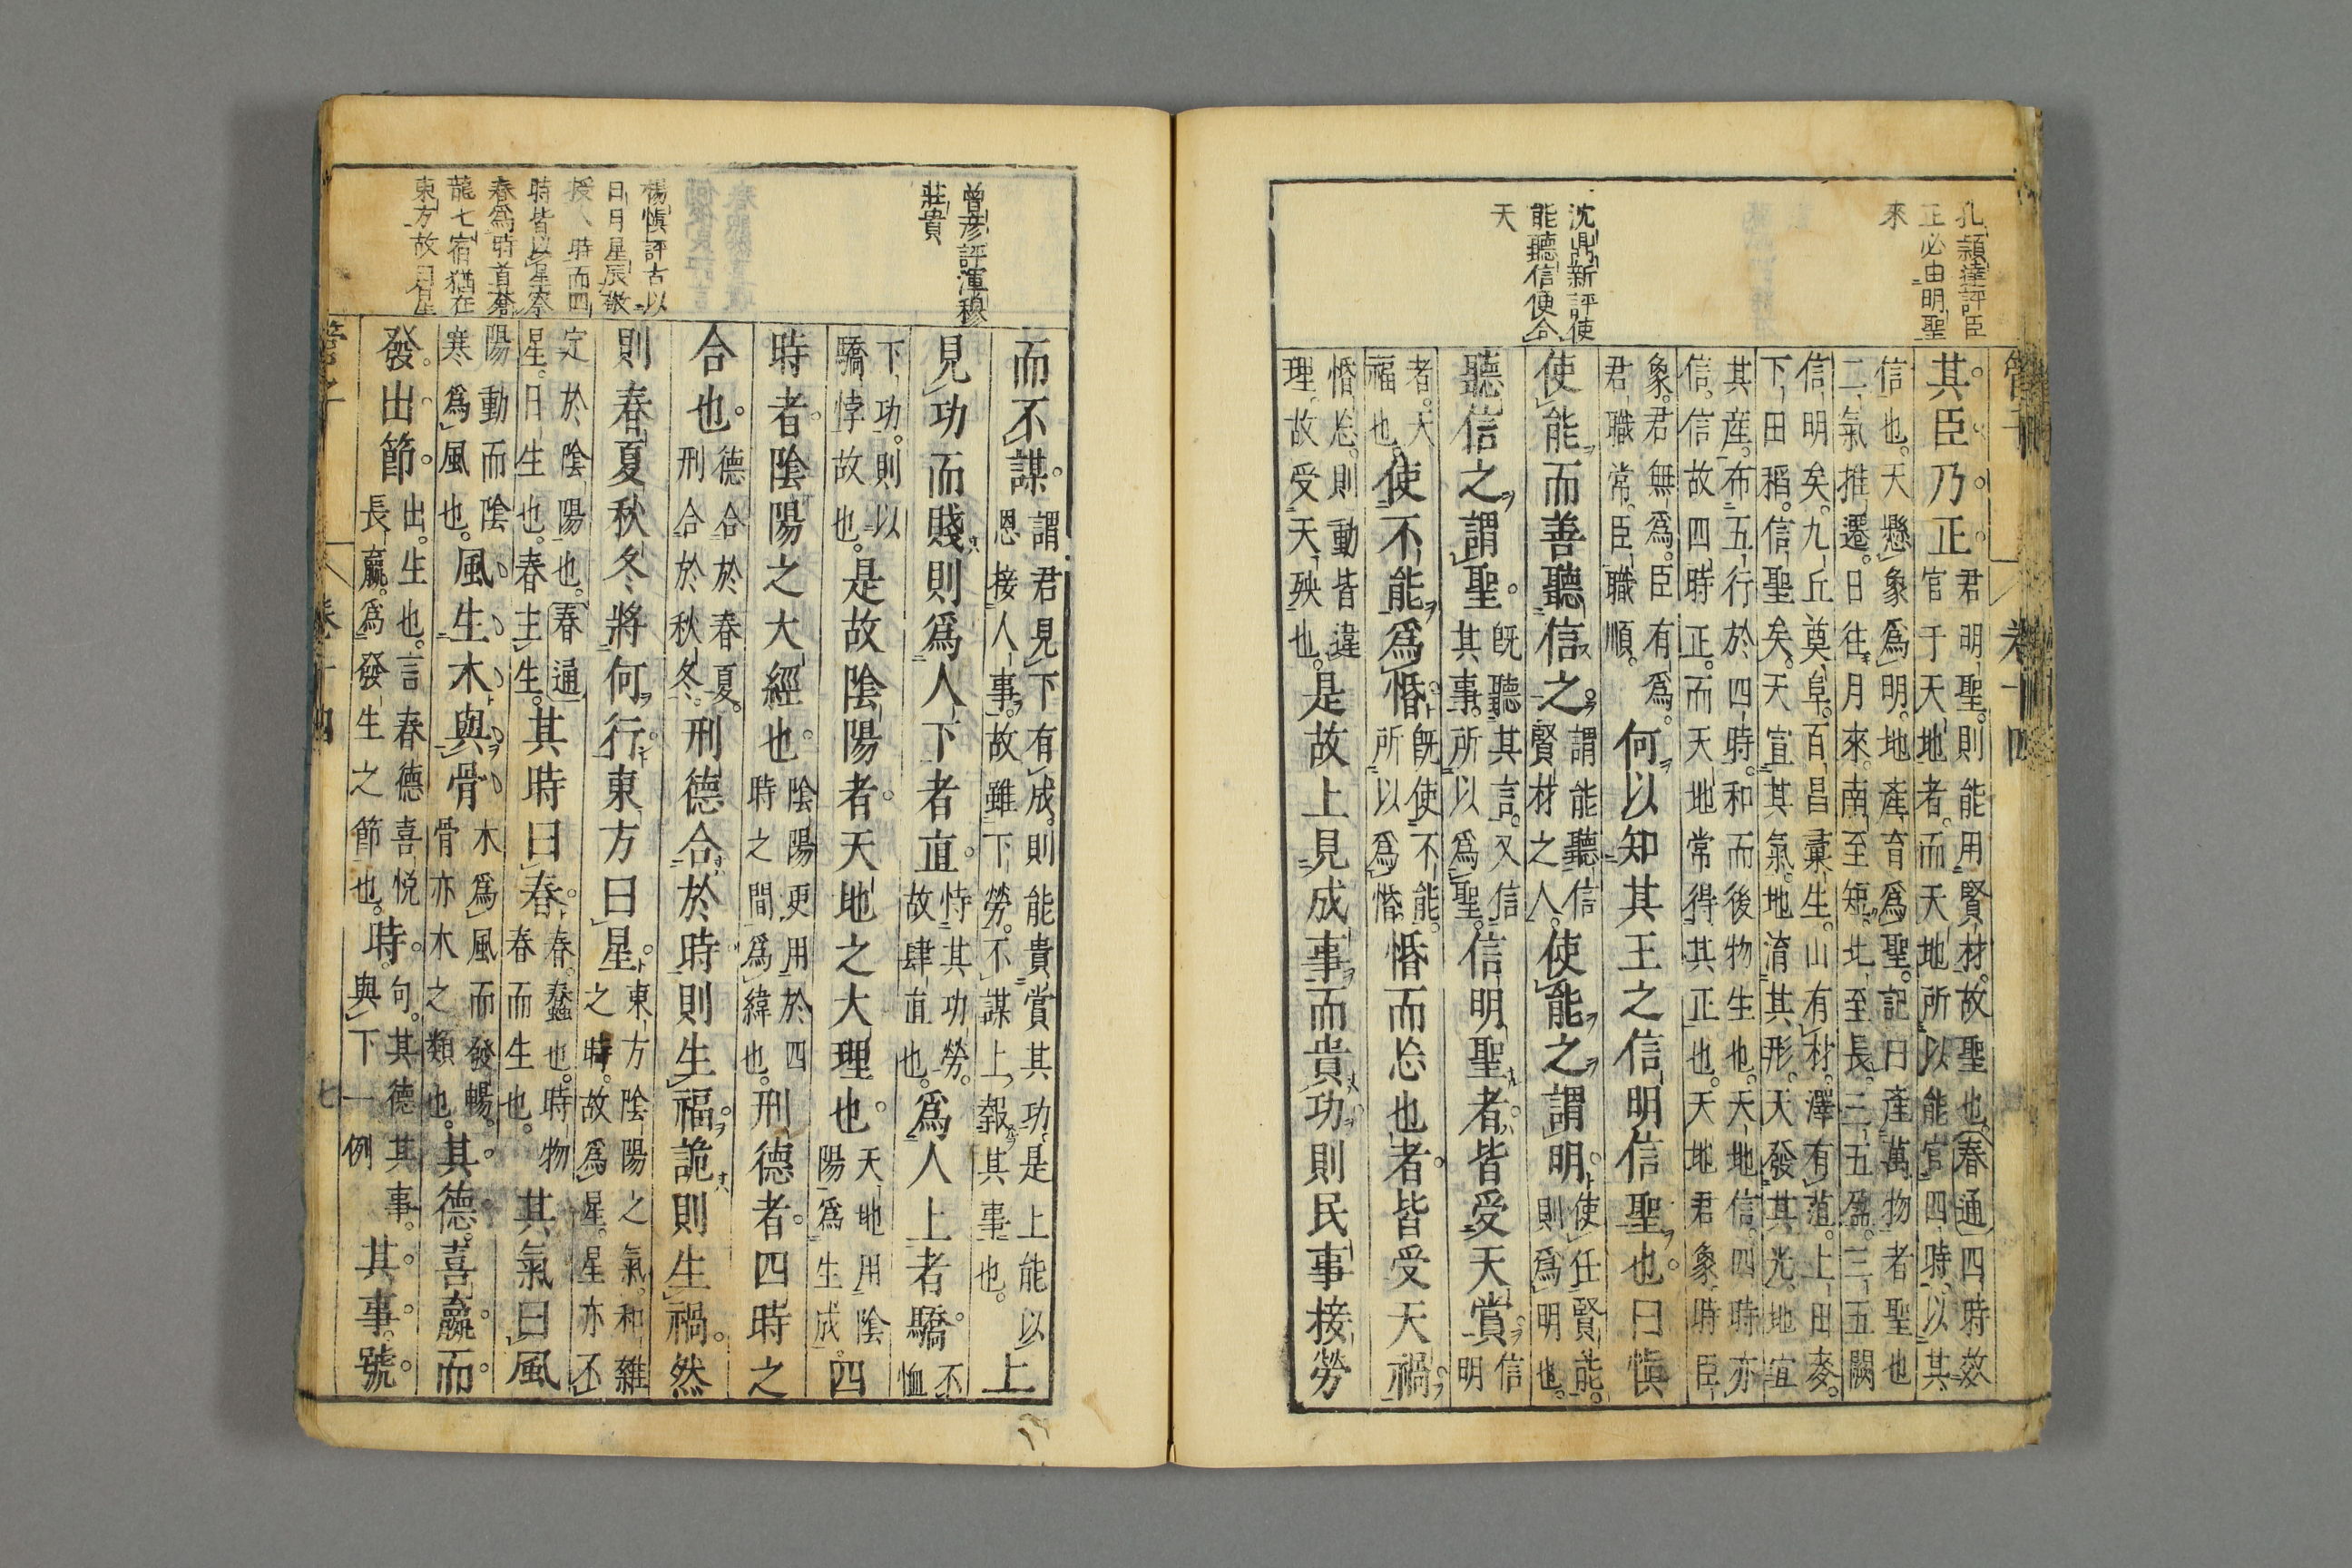 管子
卷十四
孔穎達評臣
正必由明聖
來
沈鼎新評使
能聽信使合
天
其臣乃正君明聖則能用賢材故聖也春通四時效
官于天地者而天地所以能官四時以其
信也天懸象爲明地產育爲聖記曰產萬物者聖也
二氣推遷日往月來南至短北至長三五盈三五闕
信明矣九丘奠阜百昌彙生山有材澤有蒩上田麥
下田稻信聖矣天宣其氣地淯其形天發其光地宣
其産布五行於四時和而後物生也天地信四時亦
信信故四時正而天地常得其正也天地君象時臣
象君無爲臣有爲何以知其王之信明信聖也曰愼
君職常臣職順
使能而善聽信之謂能聽信賢材之人使能之謂明使任賢能則爲明也
聽信之謂聖既聽其言又信其事所以爲聖信明聖者皆受天賞信明
者天福也使不能爲惛既使不能所以爲惛惛而忘也者皆受天禍
惛忘則動皆違理故受天殃也是故上見成事而貴功則民事接勞
曾彥評渾穆
莊貴
楊愼評古以
日月星辰敬
授人時而四
時皆以星窣
春爲時首蒼
龍七宿猶在
東方故曰星
而不謀謂君見下有成則能貴賞其功是上能以恩接人事故雖下勞不謀上報其事也上
見功而賤則爲人下者直恃其功勞故肆直也爲人上者驕不恤
下功則以驕悖故也是故陰陽者天地之大理也天地用陰陽爲生成四
時者陰陽之大經也陰陽更用於四時之間爲緯也刑德者四時之
合也德合於春夏刑合於秋冬刑德合於時則生福詭則生禍然
則春夏秋冬將何行東方曰星東方陰陽之氣和雜之時故爲星星亦不
定於陰陽也春通星日生也春主生其時曰春春蠢也時物春而生也其氣曰風
陽動而陰寒爲風也風生木與骨木爲風而發暢骨亦木之類也其德喜嬴而
發出節出生也言春德喜悅長嬴爲發生之節也時句其德其事與下一例其事號
管子
卷十四
七